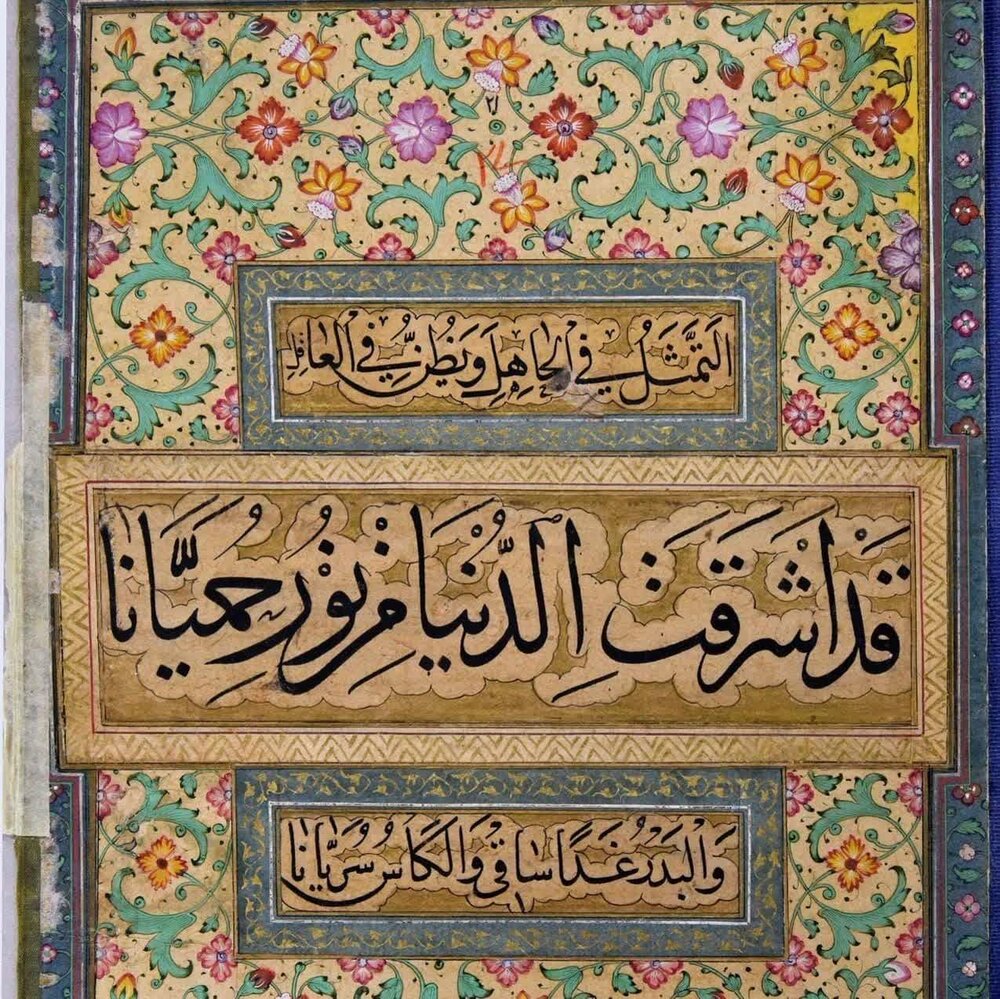 ٢١
التمثل في الجاهل في العاقل
قد اشرقت الدنيا من نور حميانا
والبدر غدا ساقي والكاس ثريانا